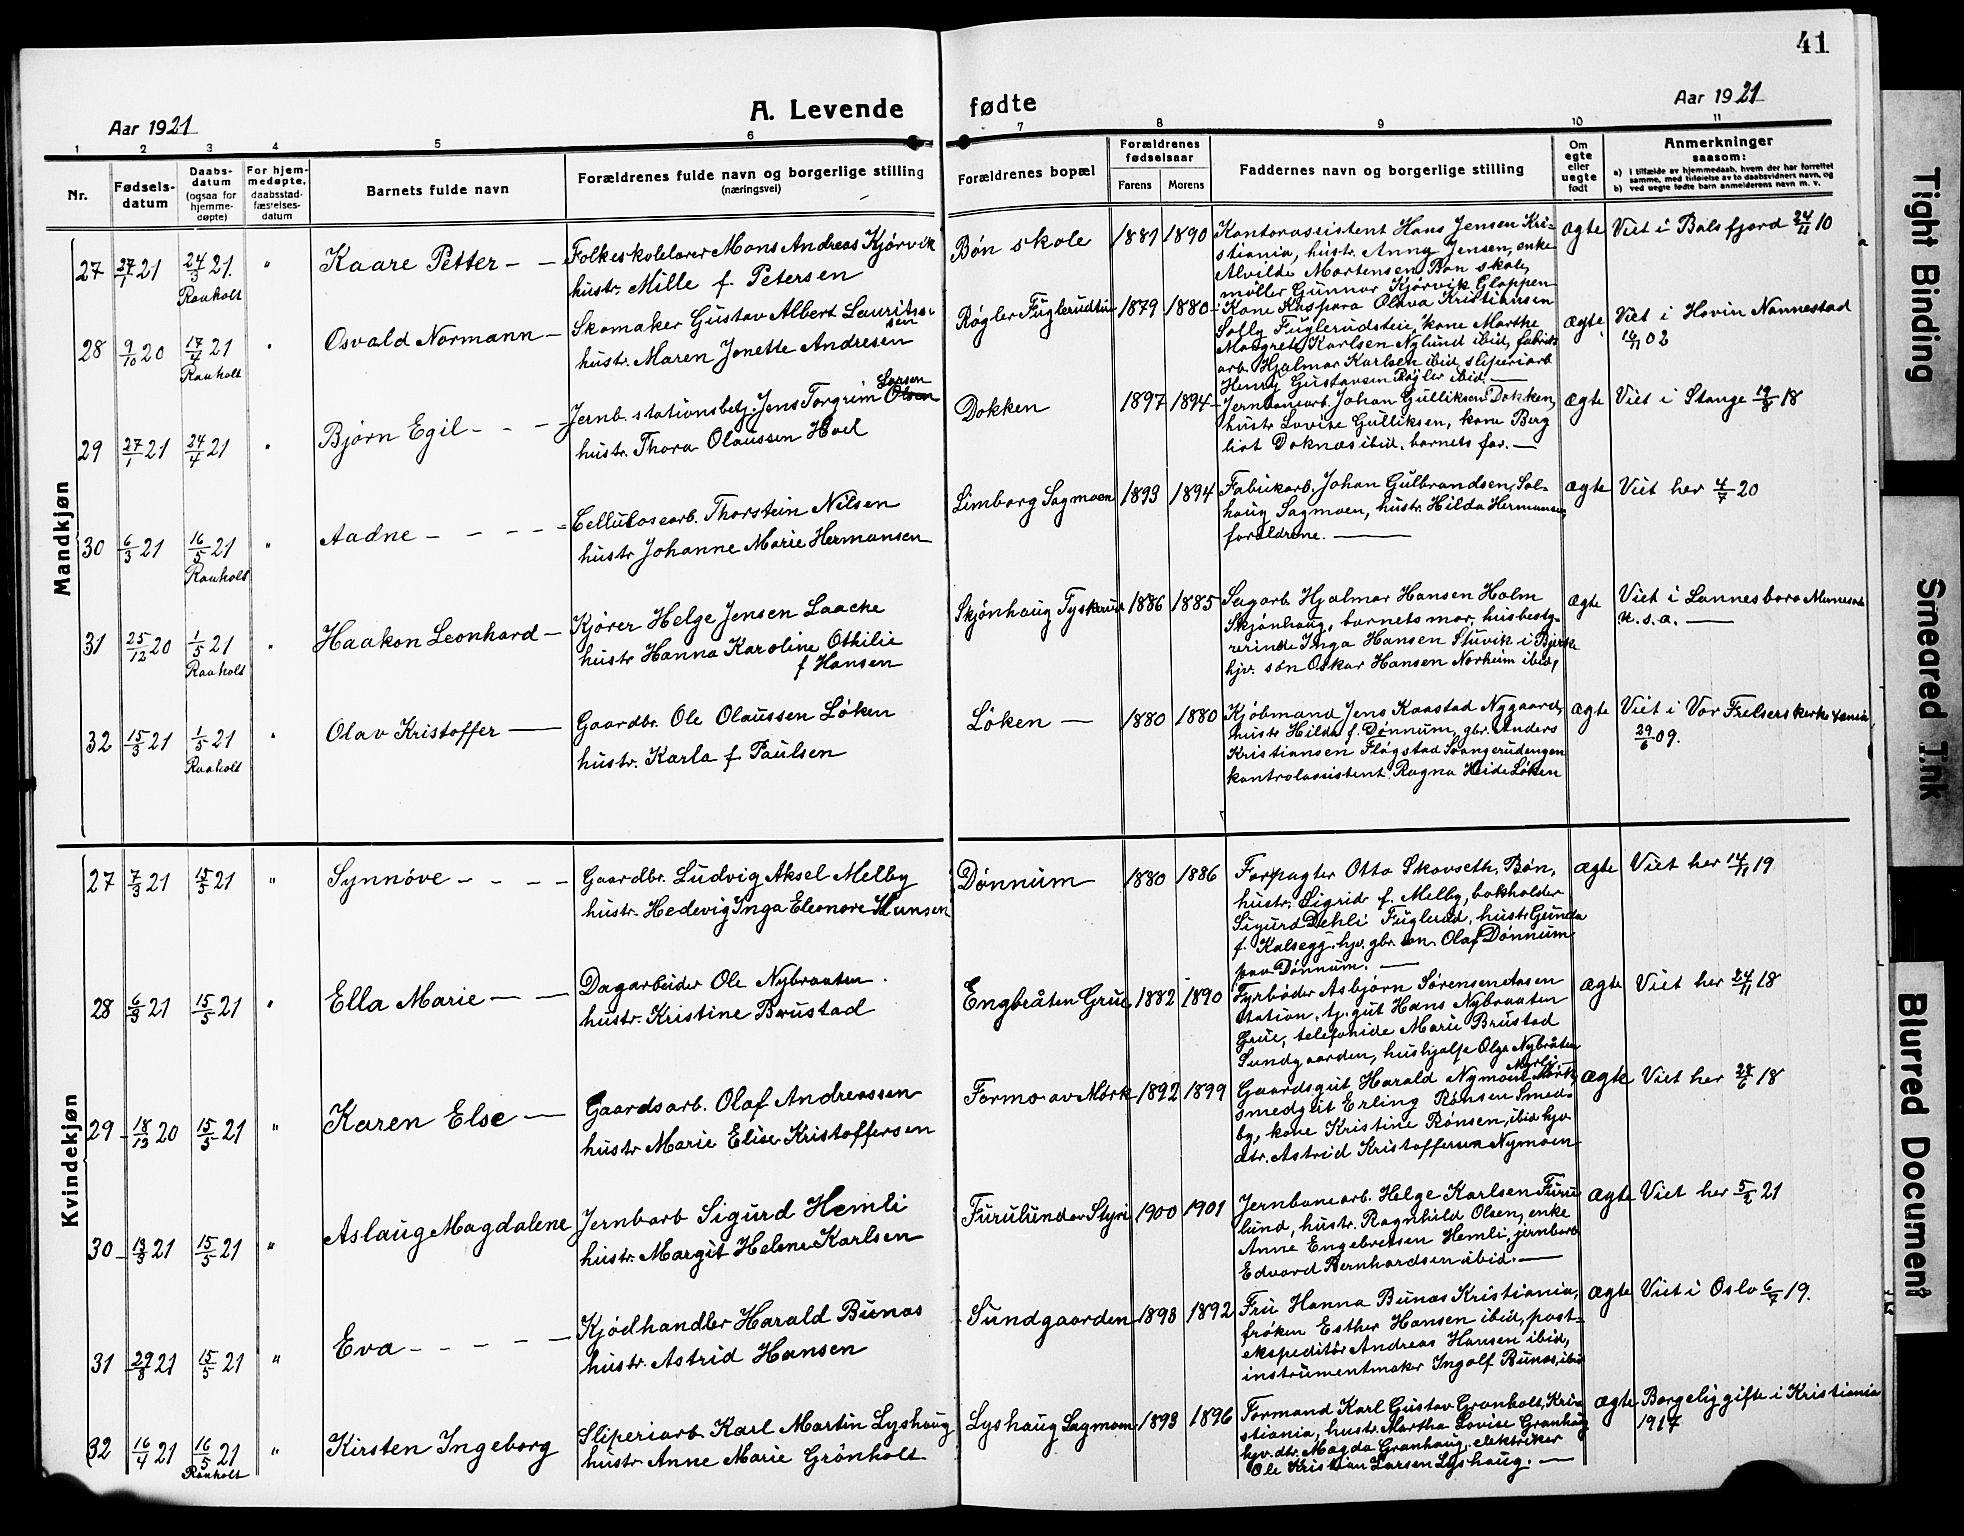 41
Aar 1921
A. Levende
fødte
Aar 1921
1 2 3 4 5 6 7 8 9 10 11
Nr.
Fødsels-
datum
Daabs-
datum
(ogsaa for
hjemme-
døpte)
For hjem-
medøpte,
daabsstad-
fæstelses-
datum
Barnets fulde navn
Forældrenes fulde navn og borgerlige stilling
(næringsvei)
Forældrenes bopæl
Forældrenes
fødselsaar
Farens
Morens
Faddernes navn og borgerlige stilling
Om
egte
eller
uegte
født
Anmerkninger
saasom:
a) i tilfælde av hjemmedaab, hvem der har forrettet
samme, med tilføielse av to daabsvidners navn, og
b) ved uegte fødte barn anmelderens navn m. v.
Mandkjøn
27 27/1 21 24/3 21. " Kaare Petter
Raaholt
Folkeskolelærer Mons Andreas Kjörvik
hustr. Mille f. Petersen
Bön skole 1881 1890
Kontorassistent Hans Jensen Kri-
stiania, hustr. Anna Jensen, enke
Alvilde Mortensen Bön skole,
möller Gunnar Kjörvik Gloppen
ægte Viet i Balsfjord 24/11 10
28 9/10 20 17/4 21 " Osvald Normann
Raaholt
Skomaker Gustav Albert Laurits-
sen
hustr. Maren Jonette Andresen
Røgler Fuglerudtu 1879 1880
Kone Kaspara Olava Kristiansen
Solly Fuglerudsteie, kone Marthe
Margrete Karlsen Nylund ibid, fabrik
arb. Hjalmar Karlsen ibid, sliperiarb
Henry Gustavsen Røgler ibid.
ægte Viet i Hovin Nannestad
16/11 02
29 27/1 21 24/4 21 " Bjørn Egil
Jernb. stationsbetj. Jens Torgrim Olsen
Larsen
hustr. Thora Olaussen Hoel
Dokken 1897 1894
Jernbanearb. Johan Gulliksen Dokken,
hustr Lovise Gulliksen, kone Berg
liot Doknæs ibid. barnets far.
ægte Viet i Stange 19/8 18
30 6/3 21 16/5 21 " Aadne
Raaholt
Cellulosearb. Thorstein Nilsen
hustr Johanne Marie Hermansen
Limborg Sagmoen 1893 1894
Fabrikarb. Johan Gulbrandsen, Sol-
haug Sagmoen, hustr. Hilda Hermansen,
foreldrene.
ægte Viet her 4/7 20
31 25/12 20 1/5 21 " Haakon Leonhard
Raaholt
Kjører Helge Jensen Laache
hustr Hanna Karoline Othilie
f Hansen
Skjönhaug Tyskerud 1886 1885
Sagarb. Hjalmar Hansen Holm
Skjönhaug, barnets mor, husbesty-
rerinde Inga Hansen Stuvik i Bjerke
hjv. sön Oskar Hansen Norheim ibid,
ægte Viet i Lannesboro Minnesota
U.s.a.
32 15/3 21 1/5 21 " Olav Kristoffer
Raaholt
Gaardbr. Ole Olaussen Løken
hustr. Karla f Paulsen
Løken 1880 1880
Kjöbmand Jens Kaastad Nygaard,
hustr Hilda f. Dønnum, gbr. Anders
Kristiansen Flogstad Svangerudengen
kontrolassistent Ragna Heide Løken
ægte Viet i Vor Frelsers kirke Xania
29/6 09.
Kvindekjøn
27 7/3 21 15/5 21 " Synnöve
Gaardbr. Ludvig Aksel Melby
hustr. Hedevig Inga Eleonore Hansen
Dønnum 1880 1886
Forpagter Otto Skovseth, Bøn,
hustr. Sigrid f. Melby, bokholder
Sigurd Dehli Fuglerud, hustr Gunda
f. Kalsegg, hjv. gbr. søn Olaf Dønnum
paa Dønnum.
ægte Viet her 14/11 19
28 6/3 21 15/5 21 " Ella Marie
Dagarbeider Ole Nybraaten
hustr. Kristine Brustad
Engbråten Grue 1882 1890
Fyrbøder Asbjørn Sörensen dosen
station, tj. gut Hans Nybraaten
Grue, telefonide Marie Brustad
Sundgaarden, hushjælp Olga Nybråten
ægte Viet her 24/11 18
29 18/12 20 15/5 21 " Karen Else
Gaardsarb. Olaf Andreassen
hustr Marie Elise Kristoffersen
Formo av Mørk 1892 1899
Gaardsgut Harald Nymoen Mørk,
smedgut Erling Rønsen Smed-
by, kone Kristine Rønsen, ibid hjv
dtr. Astrid Kristoffersen Nymoen
ægte Viet her 28/6 18
30 13/3 21 15/5 21 " Aslaug Magdalene
Jernbarb Sigurd Hemli
hustr. Margit Helene Karlsen
Furulund av Styri 1900 1901
Jernbanearb. Helge Karlsen Furu
lund, hustr. Ragnhild Olsen, enke
Anne Engebretsen Hemli, jernbarb
Edvard Bernhardsen ibid.
ægte Viet her 5/2 21
31 29/3 21 15/5 21 " Eva
Kjødhandler Harald Bunæs
hustr. Astrid Hansen
Sundgaarden 1893 1892
Fru Hanna Bunæs Kristiania,
frøken Esther Hansen ibid, post-
ekspeditör Andreas Hansen ibid,
instrumentmaker Ingolf Bunæs, ibid
ægte Viet i Oslo 6/7 19.
32 16/4 21 16/5 21 " Kirsten Ingeborg
Raaholt
Sliperiarb. Karl Martin Lyshaug
hustr. Anne Marie Grönholt
Lyshaug Sagmoen 1893 1896
Formand Karl Gustav Granholt, Kri-
stiania, hustr. Martha Lovise Granhaug
hjv. dtr. Magda Granhaug, elektriker
Ole Kristian Larsen Lyshaug.
ægte Borgelig gifte i Kristiania
1917
Tight Binding
Smeared Ink
Blurred Document